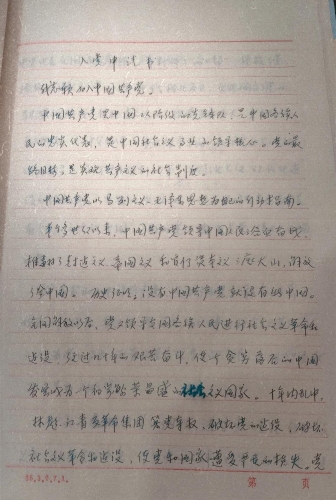 入党申请书
我志愿加入中国共产党。
中国共产党是中国工人阶级的先锋队，是中国各族人
民的忠实代表，是中国社会主义事业的领导核心。党的最
终目标，是实现共产主义的社会制度。
中国共产党以马列主义、毛泽东思想为自己的行动指南。
半个多世纪以来，中国共产党领导中国人民经过奋战，
推翻了封建主义、帝国主义和官僚资本主义三座大山，解放
了全中国。历史证明，没有中国共产党就没有新中国。
全国解放以后，党又领导全国各族人民进行社会主义革命和
建设，经过几十年的艰苦奋斗，使个贫穷落后的中国
发展成为一个初步繁荣昌盛的社会主义国家。十年内乱中，
林彪、江青反革命集团篡党夺权，破坏党的建设，破坏
社会主义革命和建设，使党和国家遭受严重的损失。党
85.2.7.1.
第 页